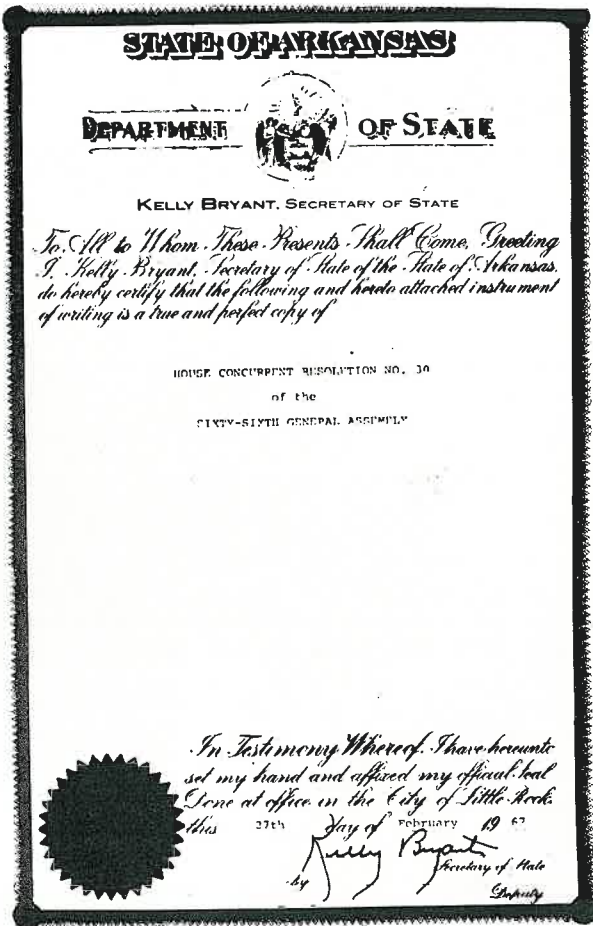 STATE OF ARKANSAS
DEPARTMENT OF STATE
KELLY BRYANT, SECRETARY OF STATE
To All to Whom These Presents Shall Come, Greeting
I, Kelly Bryant, Secretary of State of the State of Arkansas,
do hereby certify that the following and hereto attached instrument
of writing is a true and perfect copy of
HOUSE CONCURRENT RESOLUTION NO. 30
of the
SIXTY-SIXTH GENERAL ASSEMBLY
In Testimony Whereof, I have hereunto
set my hand and affixed my official Seal
Done at office in the City of Little Rock
this 27th Day of February 19 67
Kelly Bryant
Secretary of State
by
Deputy